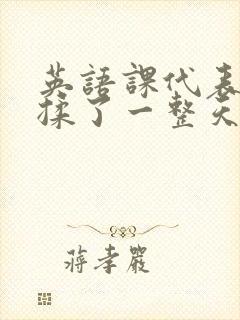 英語課代表
揉了一整天
蔣孝嚴